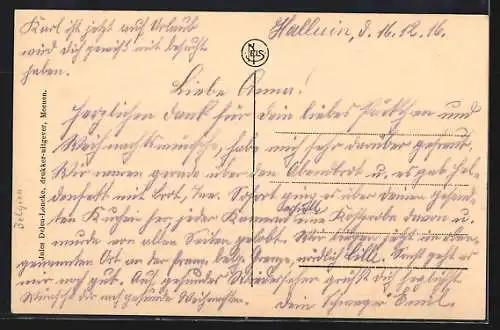 Karl ist jetzt auf Urlaub
wird Dich gewiß mit besucht
haben.
Halluin, d. 16.12.16.
NELS
Liebe Anna!
Herzlichen Dank für Dein liebes Päckchen und
Weihnachtswünsche, habe mich sehr darüber gefreut.
Wir waren gerade über dem Abendbrot u. es gab
mit Brot, Tee. Sofort ging es über deinen gesandten
Kuchen her, jeder Kamerad erhielt eine Kostprobe davon u.
wurde von allen Seiten gelobt. Wir liegen jetzt in oben-
genannten Ort an der franz. belg. Grenze, nördlich Lille. Sonst geht es
mir noch gut. Auf gesundes Wiedersehen grüßt Dich herzlichst
Wünsche Dir noch gesunde Weihnachten. Dein Schwager Emil.
Jules Delen-Loncke, drukker-uitgever, Meenen.
Belgien